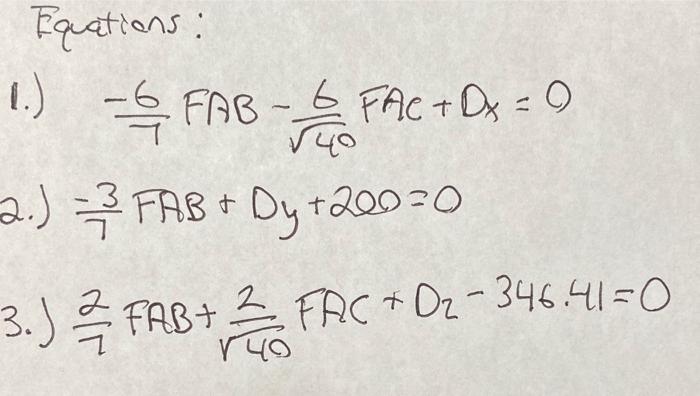 Equations:
1.) -6/7 FAB - 6/√40 FAC + Dx = 0
2.) -3/7 FAB + Dy + 200 = 0
3.) 2/7 FAB + 2/√40 FAC + Dz - 346.41 = 0